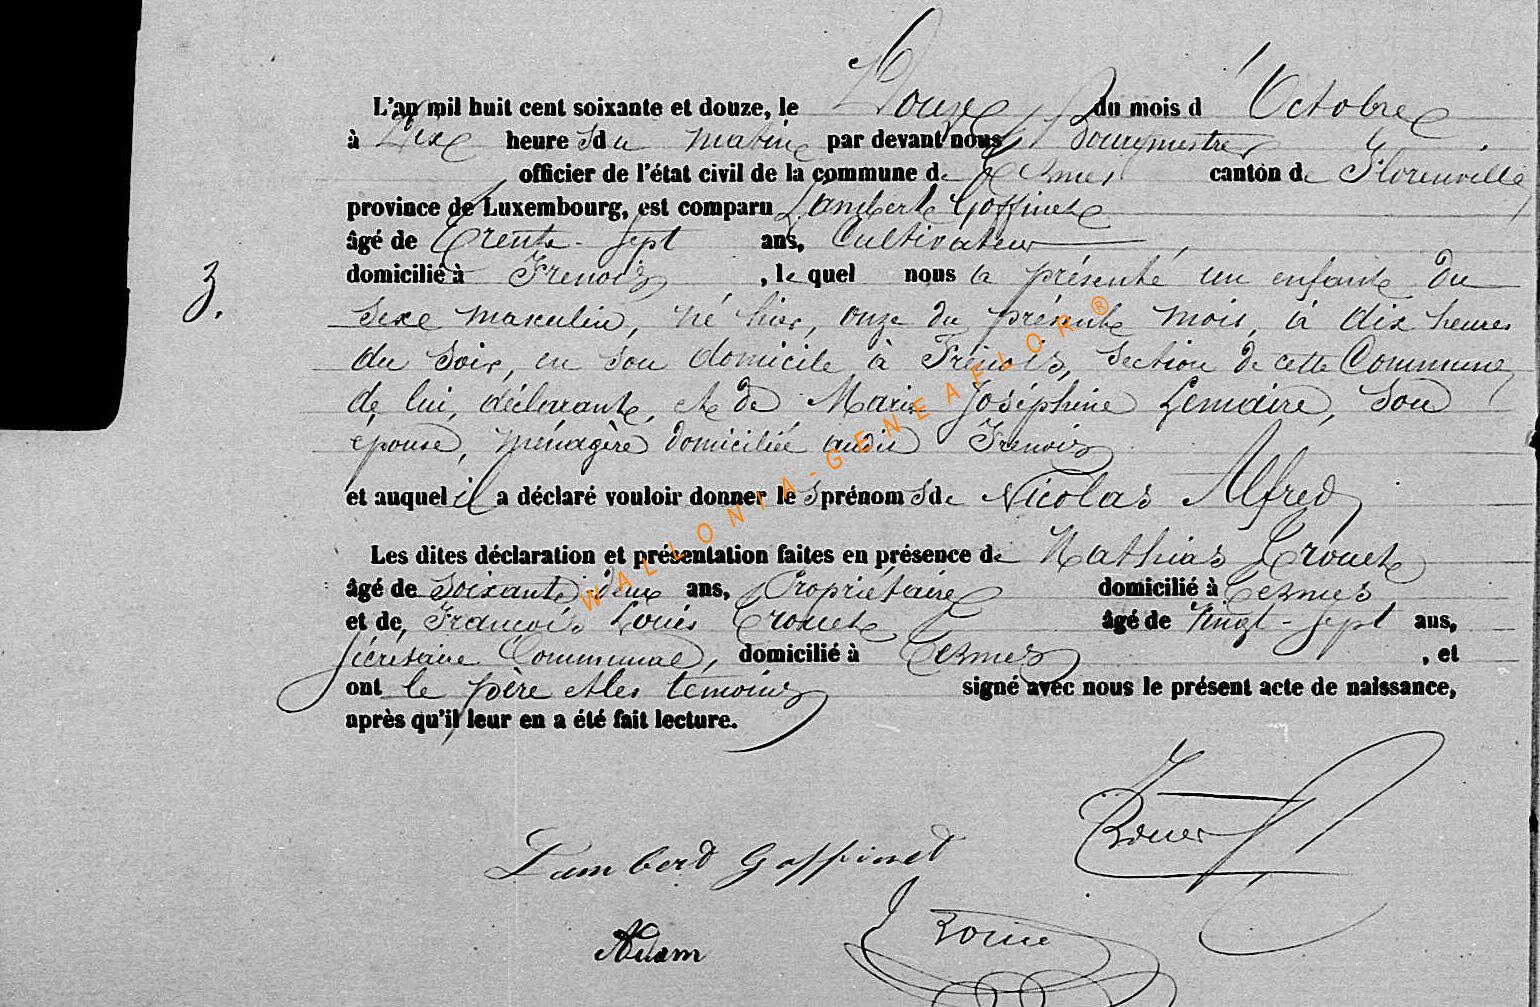 L'an mil huit cent soixante et douze, le Douze du mois d'Octobre
à Dix heures du matin par devant nous Bourgmestre
officier de l'état civil de la commune de Termes canton de Florenville
province de Luxembourg, est comparu Lambert Goffinet
âgé de Trente-sept ans, Cultivateur
domicilié à Frenois, le quel nous a présenté un enfant du
3.
sexe masculin, né hier, onze du présent mois, à dix heures
du soir, en son domicile à Frenois, section de cette Commune
de lui, déclarant, et de Marie Joséphine Lemaire, son
épouse, ménagère domiciliée audit Frenois
et auquel il a déclaré vouloir donner les prénoms de Nicolas Alfred
Les dites déclaration et présentation faites en présence de Mathias Trouet
âgé de soixante-deux ans, Propriétaire domicilié à Termes
et de François Louis Trouet âgé de Vingt-sept ans,
Sécrétaire Communal, domicilié à Termes, et
ont le père et les témoins signé avec nous le présent acte de naissance,
après qu'il leur en a été fait lecture.
WALLONIA-GENEAFLOR®
Lambert Goffinet
Adam